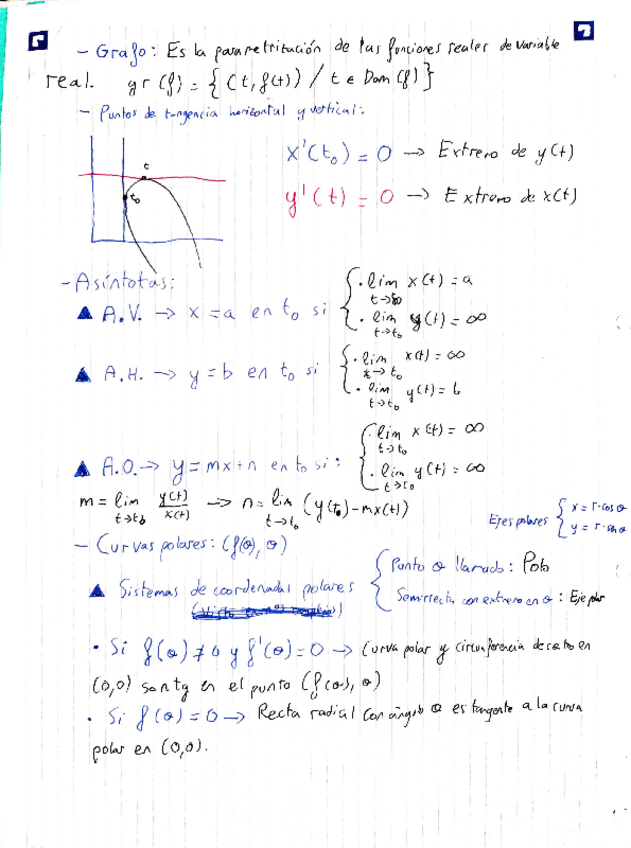 - Grafo: Es la parametritación de las funciones reales de variable
real. gr(f) = {(t, f(t)) / t ∈ Dom(f)}
- Puntos de tangencia horizontal y vertical:
x'(t₀) = 0 → Extremo de y(t)
t
t₀
y'(t) = 0 → Extremo de x(t)
- Asíntotas:
▲ A.V. → x = a en t₀ si { · lim t→t₀ x(t) = a
· lim t→t₀ y(t) = ∞
▲ A.H. → y = b en t₀ si { · lim t→t₀ x(t) = ∞
· lim t→t₀ y(t) = b
▲ A.O. → y = mx+n en t₀ si: { · lim t→t₀ x(t) = ∞
· lim t→t₀ y(t) = ∞
m = lim t→t₀ y(t)/x(t) → n = lim t→t₀ (y(t₀) - mx(t))
Ejes polares { x = r·cos θ
y = r·sen θ
- Curvas polares: (f(θ), θ)
▲ Sistemas de coordenadas polares { Punto O llamado: Polo
Semirrecta con extremo en O: Eje polar
• Si f(θ) ≠ 0 y f'(θ) = 0 → Curva polar y circunferencia de centro en
(0,0) son tg en el punto (f(θ), θ)
• Si f(θ) = 0 → Recta radial con ángulo θ es tangente a la curva
polar en (0,0).